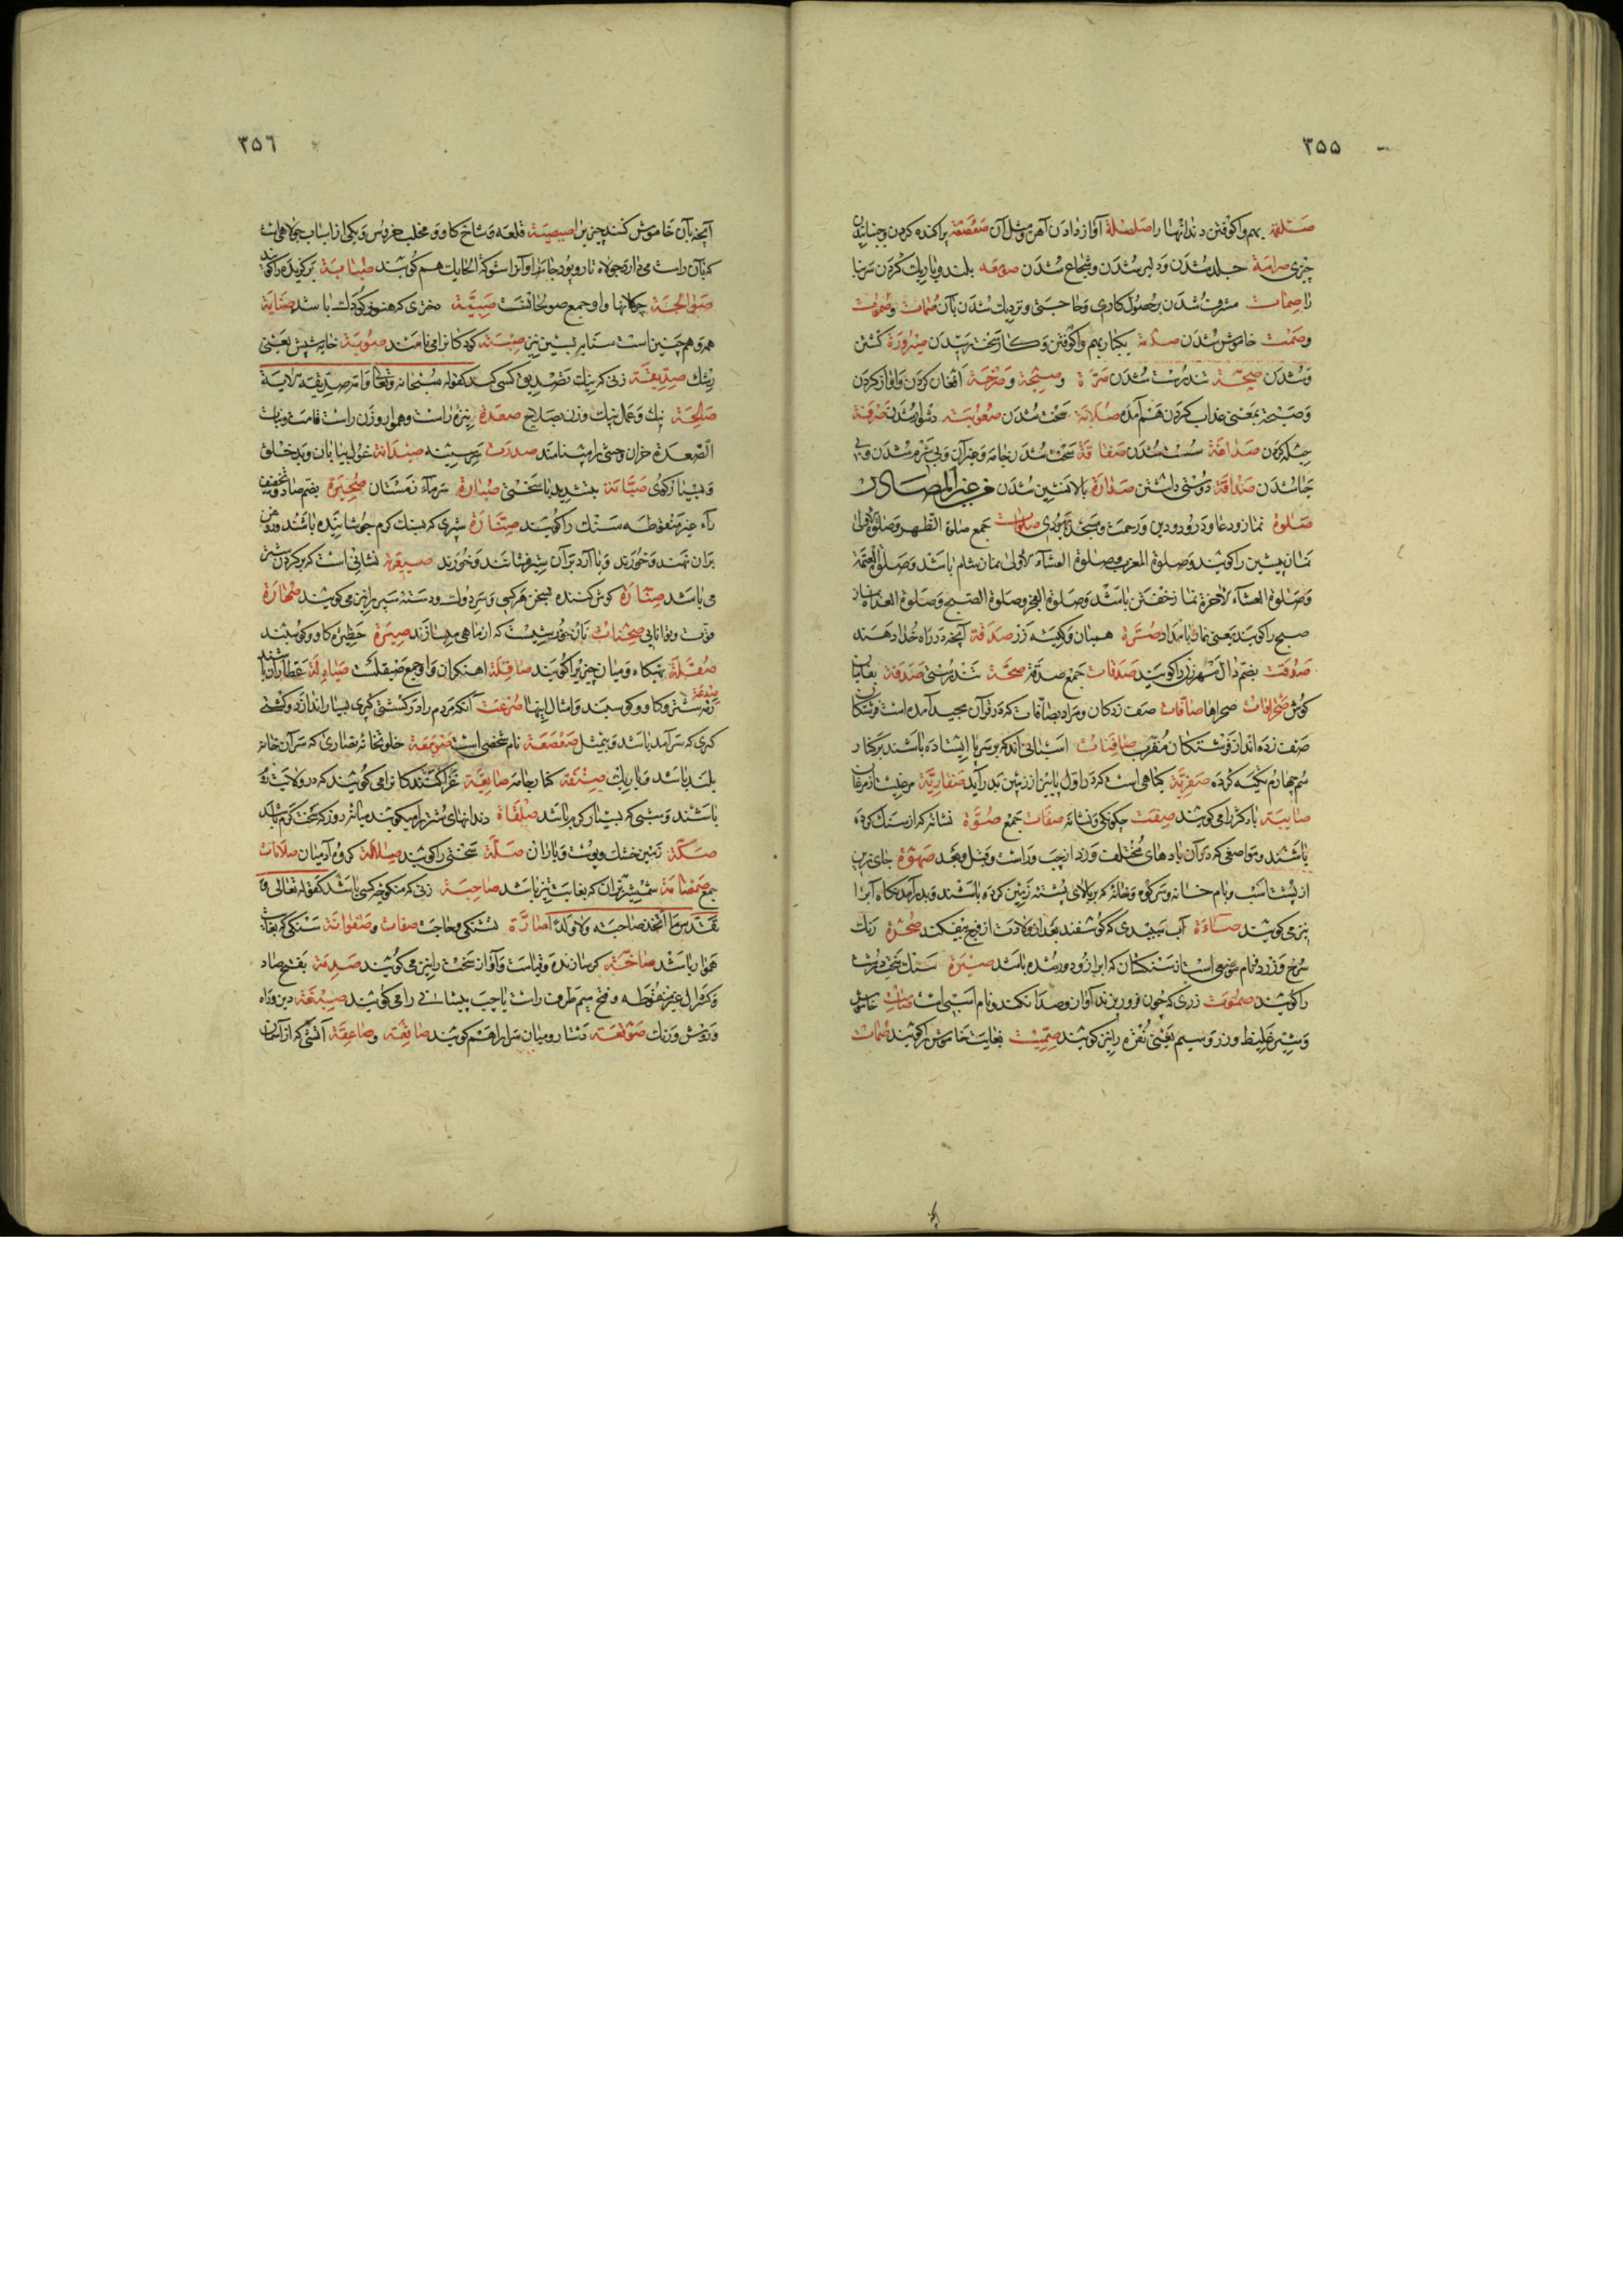 ۳۵۵
صلقمة بهم واکوفتن دندانها را صلصلة آواز دادن آهن و مثل آن صعصعة پراکنده کردن و جنبانیدن
چیزی صرامة جلد شدن و دلیر شدن و شجاع شدن صومعه بلند و باریک کردن سر بنا
را صمات مشرف شدن بر حصول کاری و حاجتی و نزدیک شدن بآن صمات و صموت
وصمت خاموش شدن صدمة یکبار بهم واکوفتن و کار سخت رسیدن صیرورة کشتن
و شدن صحة تندرست شدن صرة و صیحة و صرخة افغان کردن و آواز کردن
و صیحة بمعنی عذاب کردن هم آمده صلابة سخت شدن صعوبة دشوار شدن صرفة
حیله کردن صداعة سست شدن صفاقة سخت شدن جامه و جز آن و بی شرم شدن و بی
حیا شدن صداقة دوستی داشتن صدارة بالا نشین شدن من غیر المصادر
صلوة نماز و دعا و درود و دین و رحمت و مسجد یهودی صلوات جمع صلوة الظهر و صلوة الاولی
نماز پیشین را کویند و صلوة المغرب و صلوة العشاء الاولی نماز شام باشد و صلوة العتمة
و صلوة العشاء الاخرة نماز خفتن باشد و صلوة الفجر و صلوة الصبح و صلوة الغداة نماز
صبح را کویند یعنی نماز بامداد صرة همیان و کیسه زر صدقة آنچه در راه خدا دهند
صدقت بضم دال مهر زن را کویند صدقات جمع صدقه صحة تندرستی صدفة
کوش صحراوات صحراها صافات صف زدکان و مراد بصافات که در قرآن مجید آمده است فرشتکان
صف زده اند از فرشتکان مقرب صافنات اسبانی اند که بر سه پا ایستاده باشند بر کنار
سم چهارم تکیه کرده صفریة کیاهی است که در اول پاییز از زمین بدر آید صفاریة مرغیست از مرغان
باد کژ را می کویند صفت چکونکی و نشانه صفات جمع صوة نشانه که از سنک کرده
باشند و مواضعی که در آن بادهای مختلف وزد از چپ و راست و قبل و بعد صهوة جای زین
از پشت اسب و بام خانه و سر کوه و خانه که بر بالای پشته زمین کرده باشند و بدر آمدنکاه آب را
نیز می کویند صاءة آب سپیدی که کوسفند بعد از ولادت از فرج بیفکند صحرة رنک
سرخ و زرد و نام موضعی است از سنکستان که ابر از و دور شده باشد صبرة سنک سخت درشت
را کویند صموت زری که چون فرو ریزند آواز و صدا نکند و نام اسبی است صامت خاموش
و شیر غلیظ و زر و سیم یعنی نقره را نیز کویند صمیت بغایت خاموش را کویند صمات
۳۵۶
آنچه بآن خاموش کنند چیزی را صیصیة قلعه و شاخ کاو و مخلب خروس و یکی از اسباب جولاهی است
که بآن راست می دارد جولاه تار و پود جامه را و آنرا شوکة الحایک هم کویند صبابة برکزیده را کویند
صوالجة چوکانها و او جمع صولجانست صبیة دختری که هنوز کودک باشد صنایة
همه و هم چنین است سنایه بسین نیز صبیة کودکانرا می نامند صؤبة خایه شپش یعنی
رشک صدیقة زنی که نیک تصدیق کسی کند کقوله سبحانه و تعالی و امه صدیقة الایة
صالحة نیک و عمل نیک و زن بصلاح صعدة نیزه راست و هموار و زن راست قامت و بنات
الصعدة خران وحشی را مینامند صدرت سرسینه صیدانة غول بیابان و بد خلق
و بسیار کوی صبارة بتشدید با سختی صبارة سرماء زمستان صحیرة بضم صاد و تخفیف
راء غیر منقوطه سنک را کویند شیری که بسنک کرم جوشانیده باشند و روغن
بر آن نهند و خورند و یا آرد بر آن شیر فشانند و خورند صیعریة نشانی است که بر کردن شتر
می باشد کوش کننده بسخن هر کسی و سر دولت و دسته سپر را نیز می کویند
قوت و توانایی صحناة نان خورشیست که از ماهی میسازند صیرة حظیره کاو و کوسفند
صقلة تهیکاه و میان چیز را کویند صاقلة آهنکران و او جمع صیقلست صیادلة عطاران باشند
رمه شتر و کاو و کوسفند و امثال اینها صرعت آنکه مردم را در کشتی کیری بسیار اندازد و کشتی
کیری که سرآمد باشد و بیمثل صعصعة نام شخصی است صومعة خلوتخانه نصاری که سر آن خانه
بلند باشد و باریک صنفة کنار جامه صایفة غزا کنندکانرا می کویند که در ولایت روم
باشند و شبی که بسیار کرم باشد صلقاة دندانهای شتر را میکویند میانه روز که سخت کرم باشد
صکة زمین خشک و پوست و باران صلة سختی را کویند صلامة کروه آدمیان صلامات
جمع صمصامة شمشیر بران که بغایت تیز باشد صاحبة زنی که منکوحه کسی باشد کقوله تعالی و
تقدس ما اتخذ صاحبة ولا ولدا صارة تشنکی و حاجت صفات و صفوانة سنکی که بغایت
هموار باشد صاخة کر سازنده و قیامت و آواز سخت را نیز می کویند صدمة بفتح صاد
و کسر دال غیر منقوطه و فتح میم طرف راست یا چپ پیشانی را می کویند صبغة دین و راه
و روش و رنک صوقعة دستار و میان سر را هم کویند صاقعة و صاعقة آتشی که از آسمان